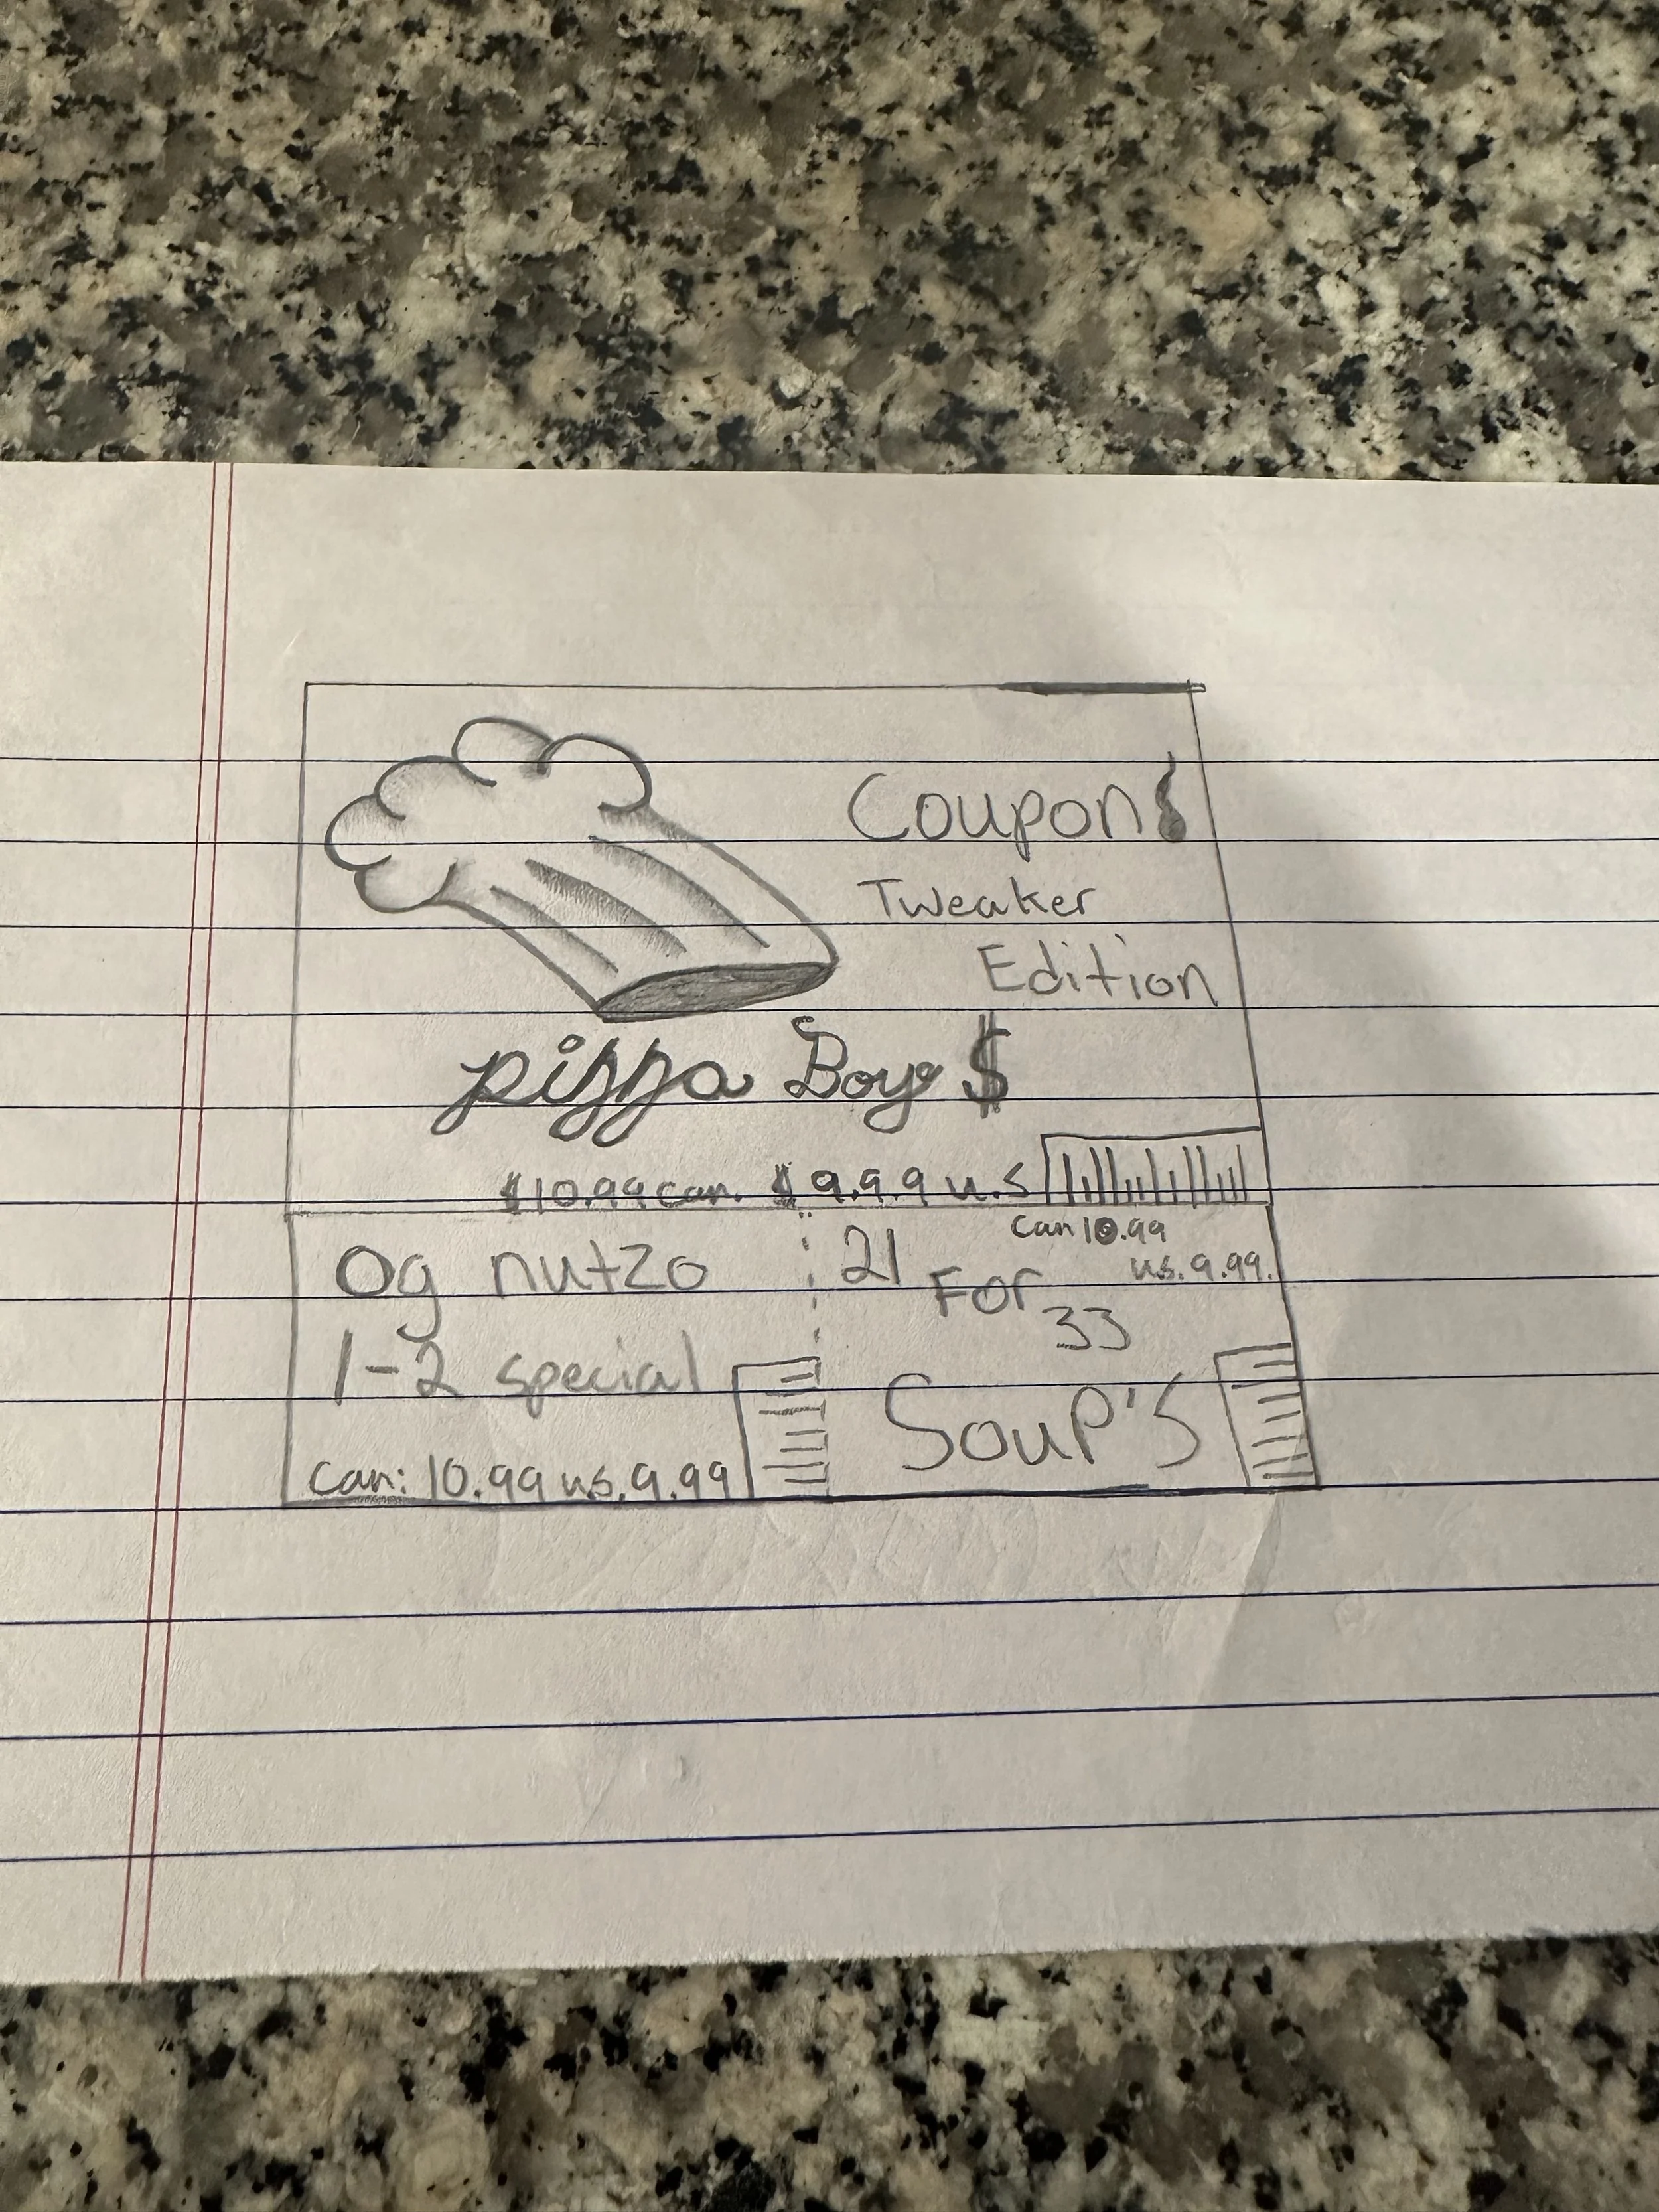 Coupon
Tweaker
Edition
pizza Boy$
$10.99 can. $9.9.9 u.s
og nutzo
1-2 special
can: 10.99 us. 9.99
21 For 33
can 10.99
us. 9.99.
Soup's